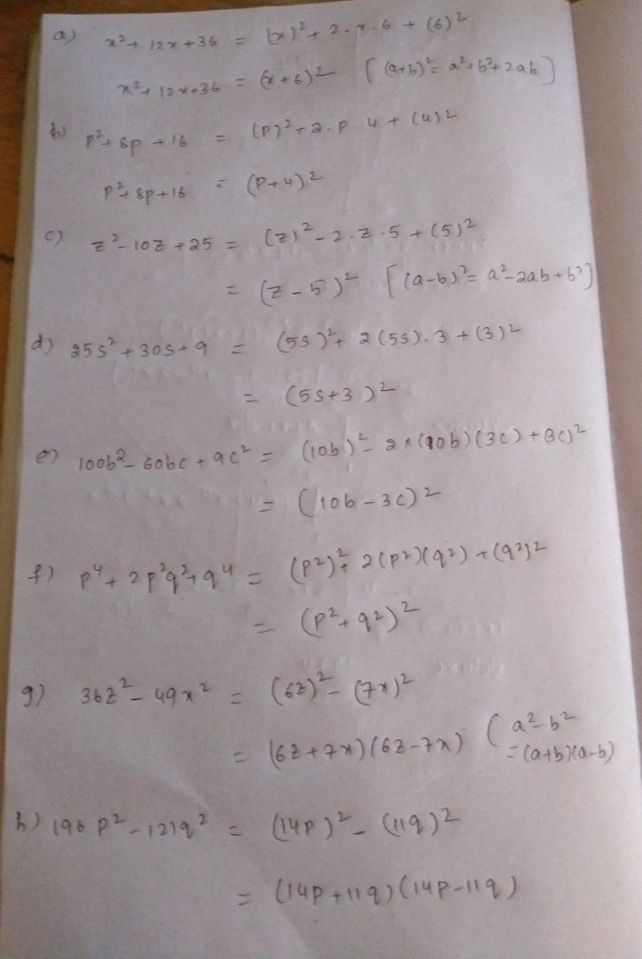 a) x² + 12x + 36 = (x)² + 2 · x · 6 + (6)²
x² + 12x + 36 = (x + 6)² [(a+b)² = a² + b² + 2ab]
b) p² + 8p + 16 = (p)² + 2 · p · 4 + (4)²
p² + 8p + 16 = (p + 4)²
c) z² - 10z + 25 = (z)² - 2 · z · 5 + (5)²
= (z - 5)² [(a-b)² = a² - 2ab + b²]
d) 25s² + 30s + 9 = (5s)² + 2(5s) · 3 + (3)²
= (5s + 3)²
e) 100b² - 60bc + 9c² = (10b)² - 2 × (10b)(3c) + (3c)²
= (10b - 3c)²
f) p⁴ + 2p²q² + q⁴ = (p²)² + 2(p²)(q²) + (q²)²
= (p² + q²)²
g) 36z² - 49x² = (6z)² - (7x)²
= (6z + 7x)(6z - 7x) (a² - b²
= (a+b)(a-b)
h) 196p² - 121q² = (14p)² - (11q)²
= (14p + 11q)(14p - 11q)